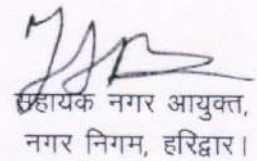 सहायक नगर आयुक्त,
नगर निगम, हरिद्वार।